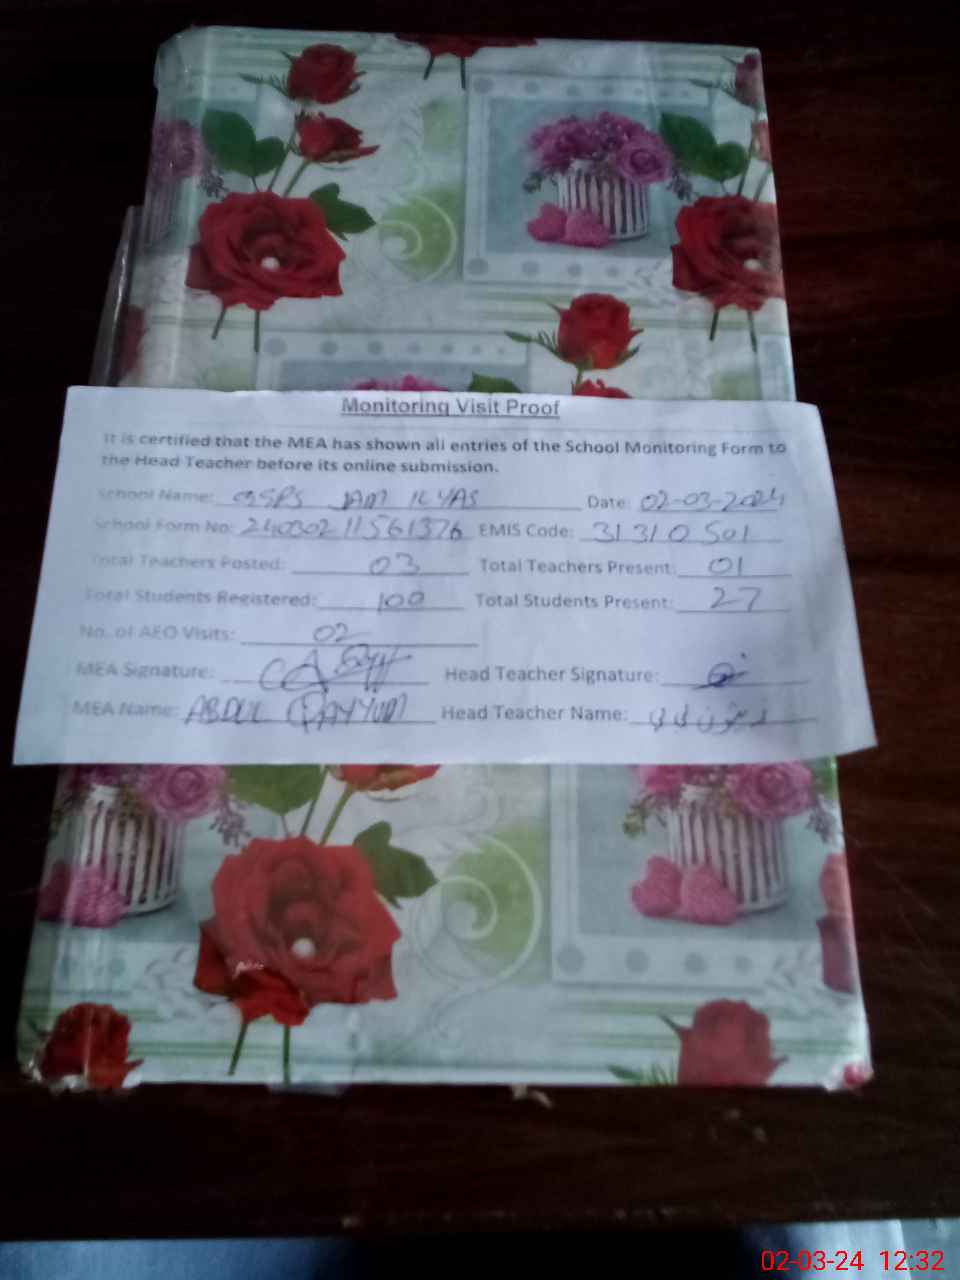 Monitoring Visit Proof
It is certified that the MEA has shown all entries of the School Monitoring Form to
the Head Teacher before its online submission.
School Name: GSPS JAM ILYAS Date: 02-03-2024
School Form No: 24030211561376 EMIS Code: 31310501
Total Teachers Posted: 03 Total Teachers Present: 01
Total Students Registered: 100 Total Students Present: 27
No. of AEO Visits: 02
MEA Signature: Head Teacher Signature:
MEA Name: ABDUL QAYYUM Head Teacher Name:
02-03-24 12:32